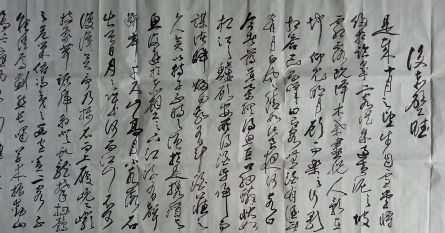 後赤壁賦
是歲十月之望步自雪堂將
歸於臨皋二客從予過黃泥之坂
霜露既降木葉盡脫人影在
地仰見明月顧而樂之行歌
相答已而嘆曰有客無酒有酒無
肴月白風清如此良夜何客曰
今者薄暮舉網得魚巨口細鱗狀如
松江之鱸顧安所得酒乎歸而
謀諸婦婦曰我有斗酒藏之
久矣以待子不時之須於是攜酒與
魚復遊於赤壁之下江流有聲
斷岸千尺山高月小水落石
出曾日月之幾何而江山不可
復識矣予乃攝衣而上履巉巖
披蒙茸踞虎豹登虬龍攀棲鶻
之危巢俯馮夷之幽宮蓋二客不
能從焉劃然長嘯草木震動山